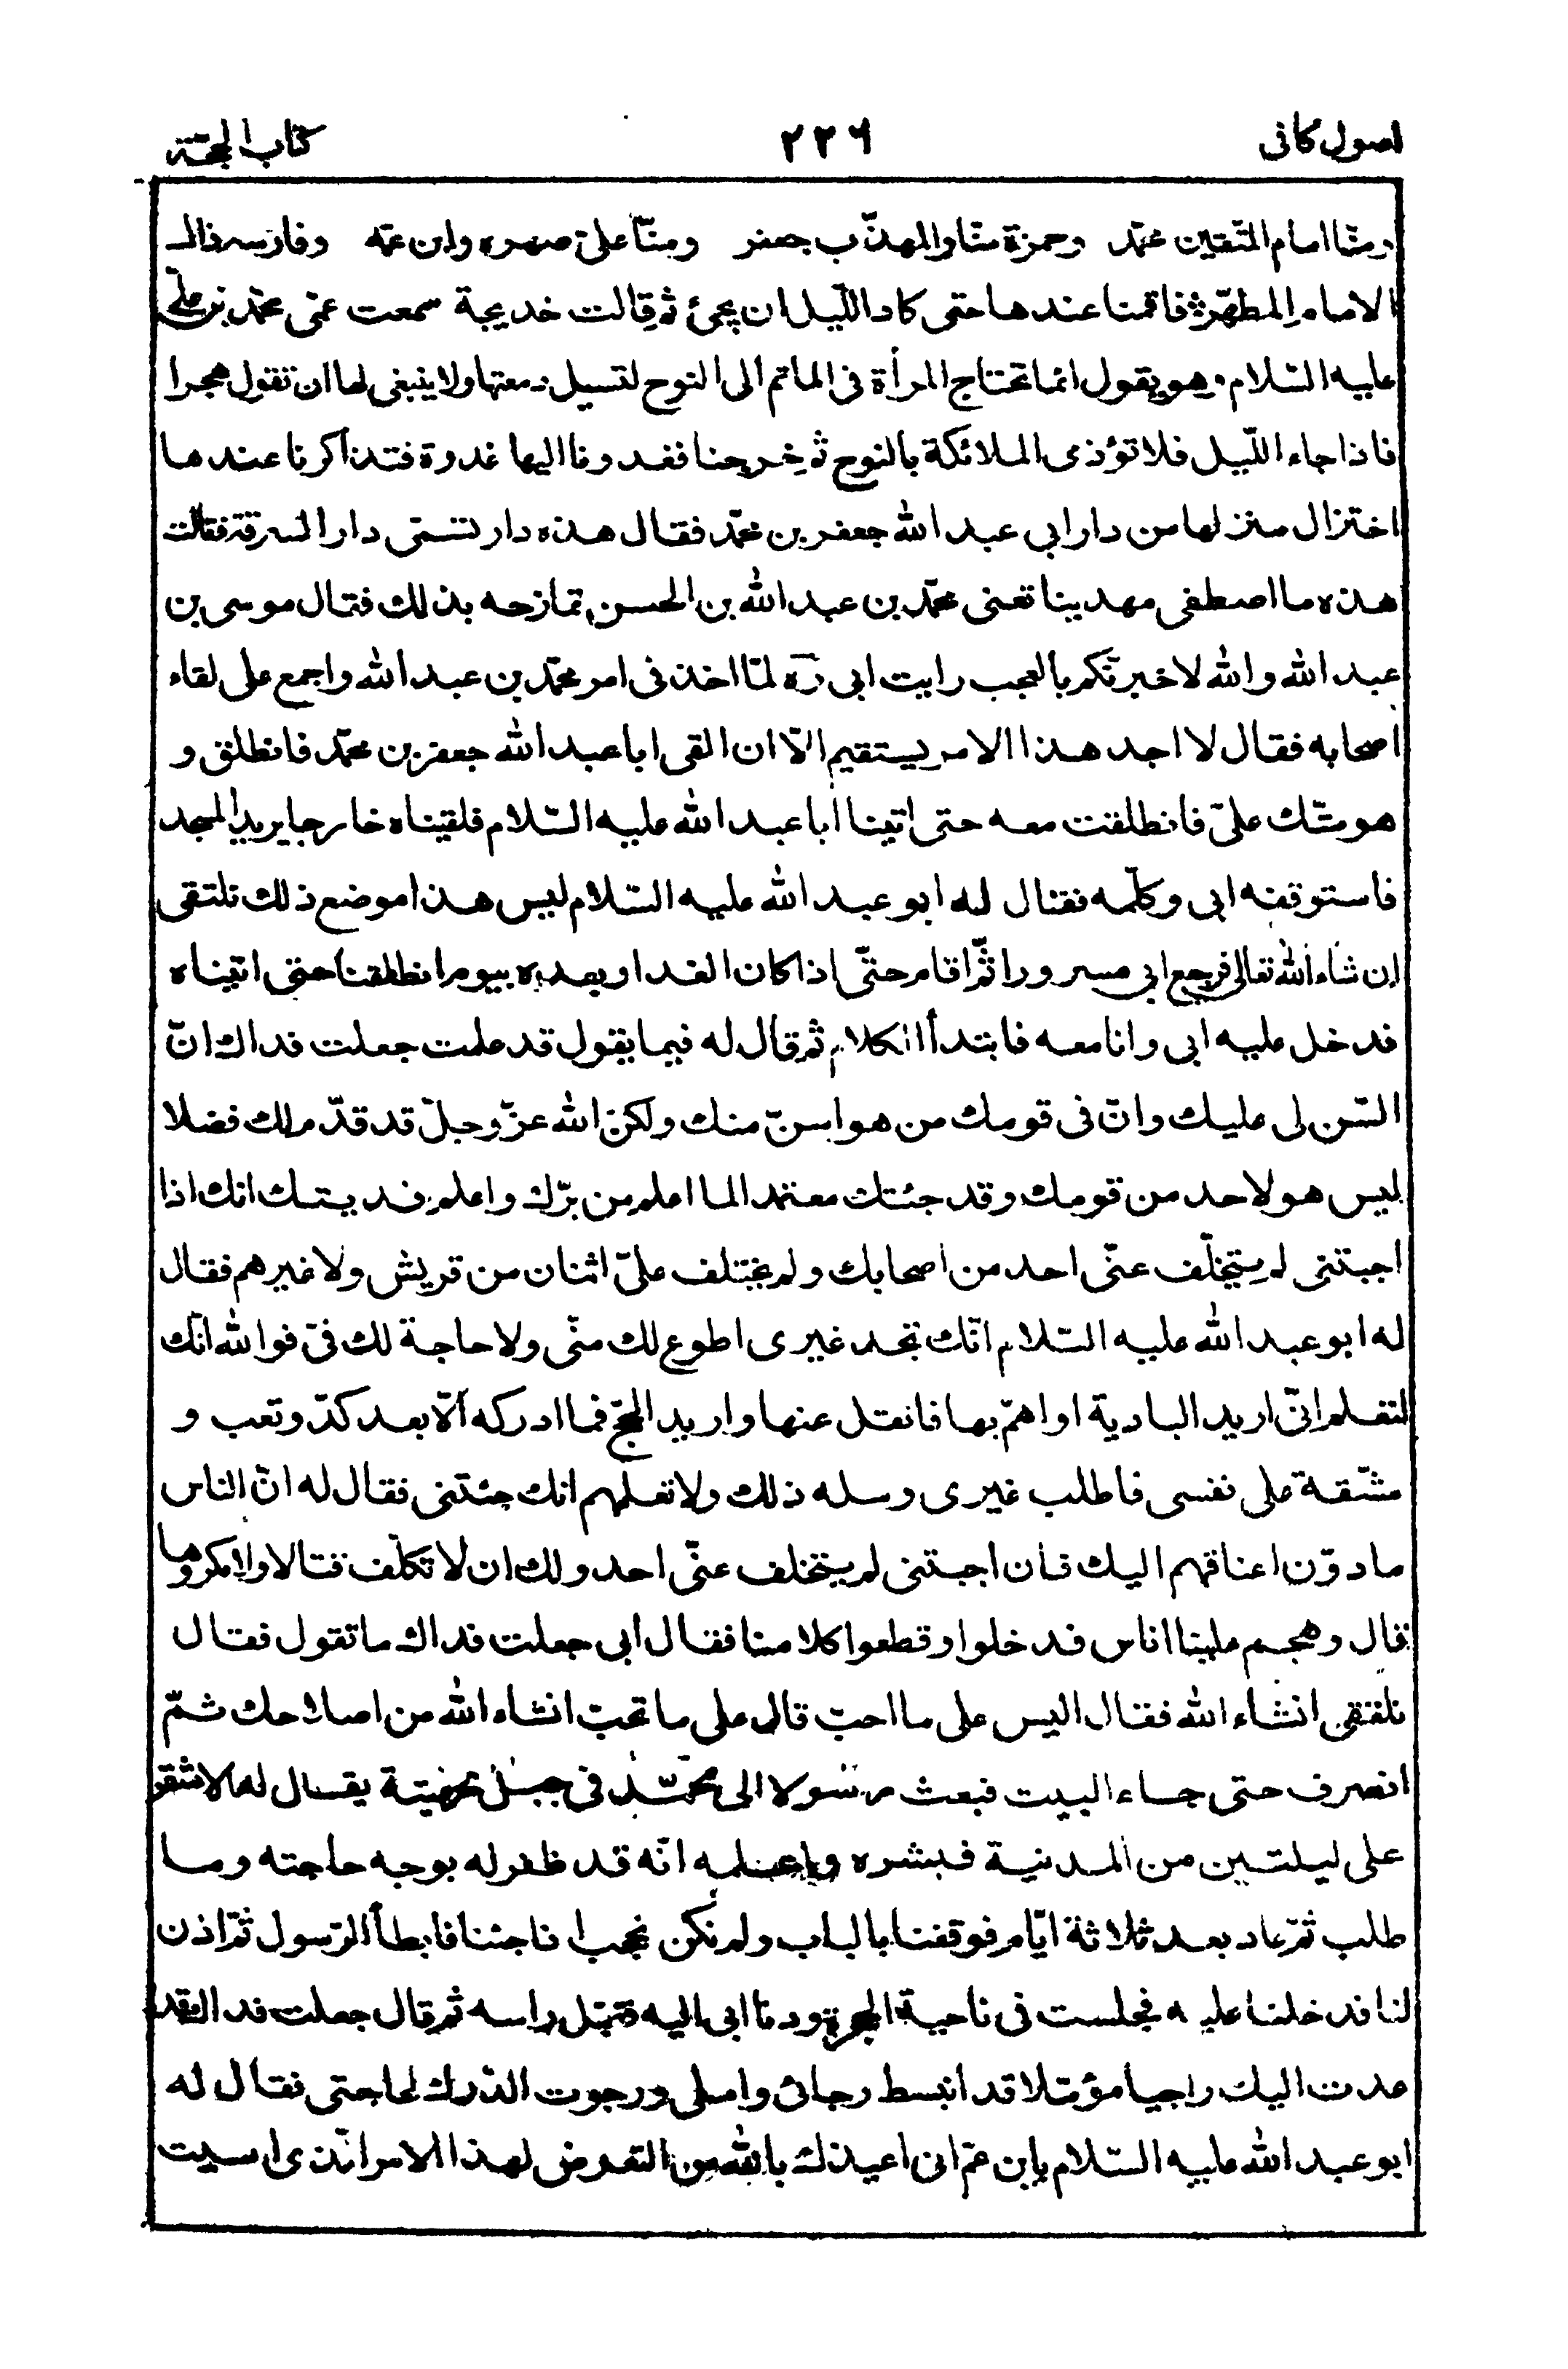 اصول كافى
٢٢٦
كتاب الحجّة
ومنّا امام المتّقين محمّد وحمزة منّا والمهذّب جعفر ومنّا علىّ صهره وابن عمّه وفارسه ذاك
الامام المطهّر فاقمنا عندها حتى كاد اللّيل ان يجئ ثمّ قالت خديجة سمعت عمّى محمّد بن علىّ
عليه السّلام وهو يقول انّما تحتاج المرأة فى الماتم الى النوح لتسيل دمعتها ولا ينبغى لها ان تقول هجرا
فاذا جاء اللّيل فلا تؤذى الملائكة بالنوح ثمّ خرجنا فغدونا اليها غدوة فتذاكرنا عندها
اختزال منزلها من دار ابى عبد الله جعفر بن محمّد فقال هذه دار تسمّى دار السرقة فقالت
هذه ما اصطفى مهدينا تعنى محمّد بن عبد الله بن الحسن تمازحه بذلك فقال موسى بن
عبد الله والله لاخبرنّكم بالعجب رايت ابى ره لمّا اخذ فى امر محمّد بن عبد الله واجمع على لقاء
اصحابه فقال لا اجد هذا الامر يستقيم الّا ان القى ابا عبد الله جعفر بن محمّد فانطلق و
هو متّك علىّ فانطلقت معه حتى اتينا أبا عبد الله عليه السّلام فلقيناه خارجا يريد المسجد
فاستوقفه ابى وكلّمه فقال له ابو عبد الله عليه السّلام ليس هذا موضع ذلك نلتقى
ان شاء الله تعالى فرجع ابى مسرورا ثمّ اقام حتّى اذا كان الغد او بعده بيوم انطلقنا حتى اتيناه
فدخل عليه ابى وانا معه فابتدأ الكلام ثم قال له فيما يقول قد علمت جعلت فداك انّ
السّن لى عليك وانّ فى قومك من هو اسنّ منك ولكنّ الله عزّ وجلّ قد قدّم لك فضلا
ليس هو لاحد من قومك وقد جئتك معتمدا لما اعلم من برّك واعلم فديتك انك اذا
اجبتنى لم يتخلّف عنّى احد من اصحابك ولم يختلف علىّ اثنان من قريش ولا غيرهم فقال
له ابو عبد الله عليه السّلام انّك تجد غيرى اطوع لك منّى ولا حاجة لك فىّ فوالله انّك
لتعلم انّى اريد البادية او اهمّ بها فاثقل عنها واريد الحجّ فما ادركه الّا بعد كدّ وتعب و
مشّقة على نفسى فاطلب غيرى وسله ذلك ولا تعلمهم انك جئتنى فقال له انّ الناس
مادّون اعناقهم اليك فان اجبتنى لم يتخلف عنّى احد ولك ان لا تكلّف قتالا ولا مكروها
قال وهجم علينا اناس فدخلوا وقطعوا كلامنا فقال أبى جعلت فداك ما تقول فقال
نلتقى انشاء الله فقال اليس على ما احبّ قال على ما تحبّ انشاء الله من اصلاحك ثمّ
انصرف حتى جاء البيت فبعث رسولا الى محمّد فى جبل بجهينة يقال له الاشقر
على ليلتين من المدنية فبشره واعلمه انّه قد ظفر له بوجه حاجته وما
طلب ثمّ عاد بعد ثلاثة ايّام فوقفنا بالباب ولم نكن نحجب اذا جئنا فابطأ الرّسول ثمّ اذن
لنا فدخلنا عليه فجلست فى ناحية الحجرة ودنا ابى اليه فقبّل راسه ثم قال جعلت فداك قد
عدت اليك راجيا مؤمّلا قد انبسط رجائى واملى ورجوت الدّرك لحاجتى فقال له
ابو عبد الله عليه السّلام يابن عمّ انى اعيذك بالله من التعرض لهذا الامر الّذى امسيت